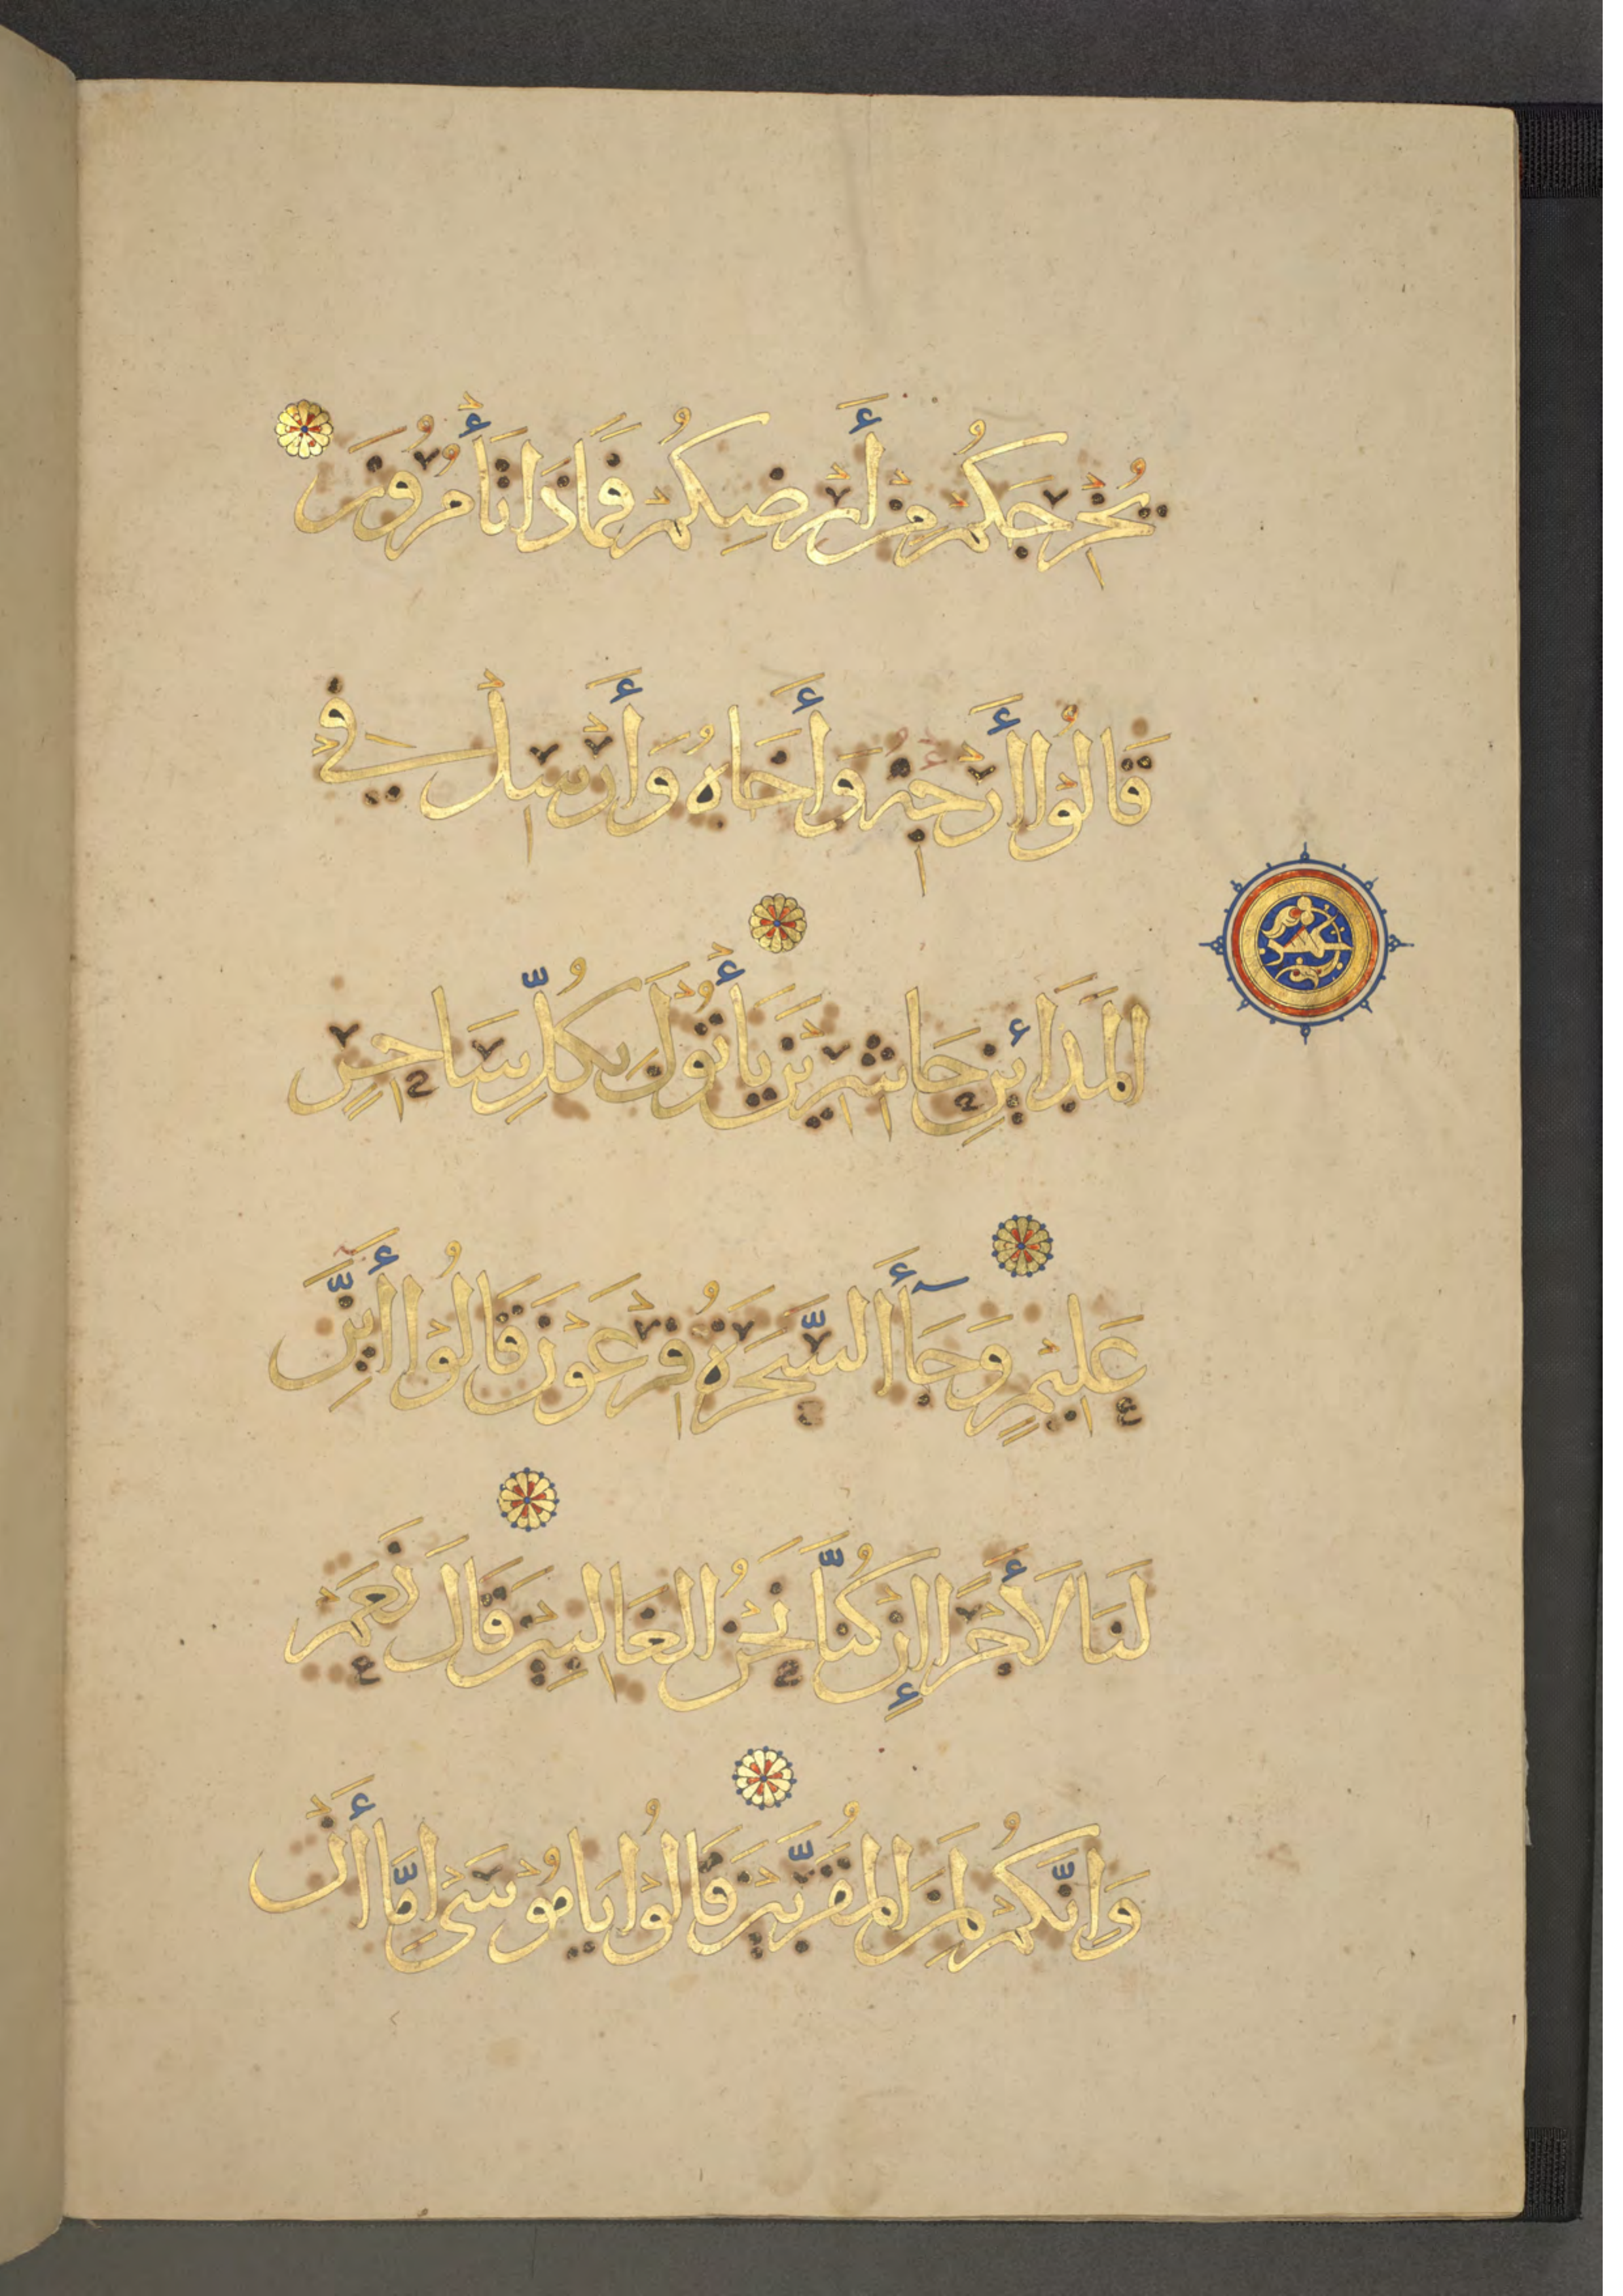 يُخْرِجَكُمْ مِنْ أَرْضِكُمْ فَمَاذَا تَأْمُرُونَ
قَالُوْا أَرْجِهْ وَأَخَاهُ وَأَرْسِلْ فِي
الْمَدَائِنِ حَاشِرِيْنَ يَأْتُوْكَ بِكُلِّ سَاحِرٍ
عَلِيْمٍ وَجَآءَ السَّحَرَةُ فِرْعَوْنَ قَالُوْا أَئِنَّ
لَنَا لَأَجْرًا إِنْ كُنَّا نَحْنُ الْغَالِبِيْنَ قَالَ نَعَمْ
وَاِنَّكُمْ لَمِنَ الْمُقَرَّبِيْنَ قَالُوْا يَا مُوْسَىْ اِمَّا أَنْ